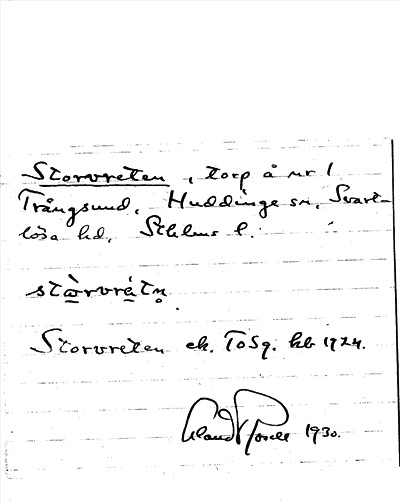 Storvreten, torp å nr 1
Trångsund, Huddinge sn, Svart-
lösa hd, Sthlms l.
stòrvrétn̥.
Storvreten ek. ToSg. kb 1924.
1930.